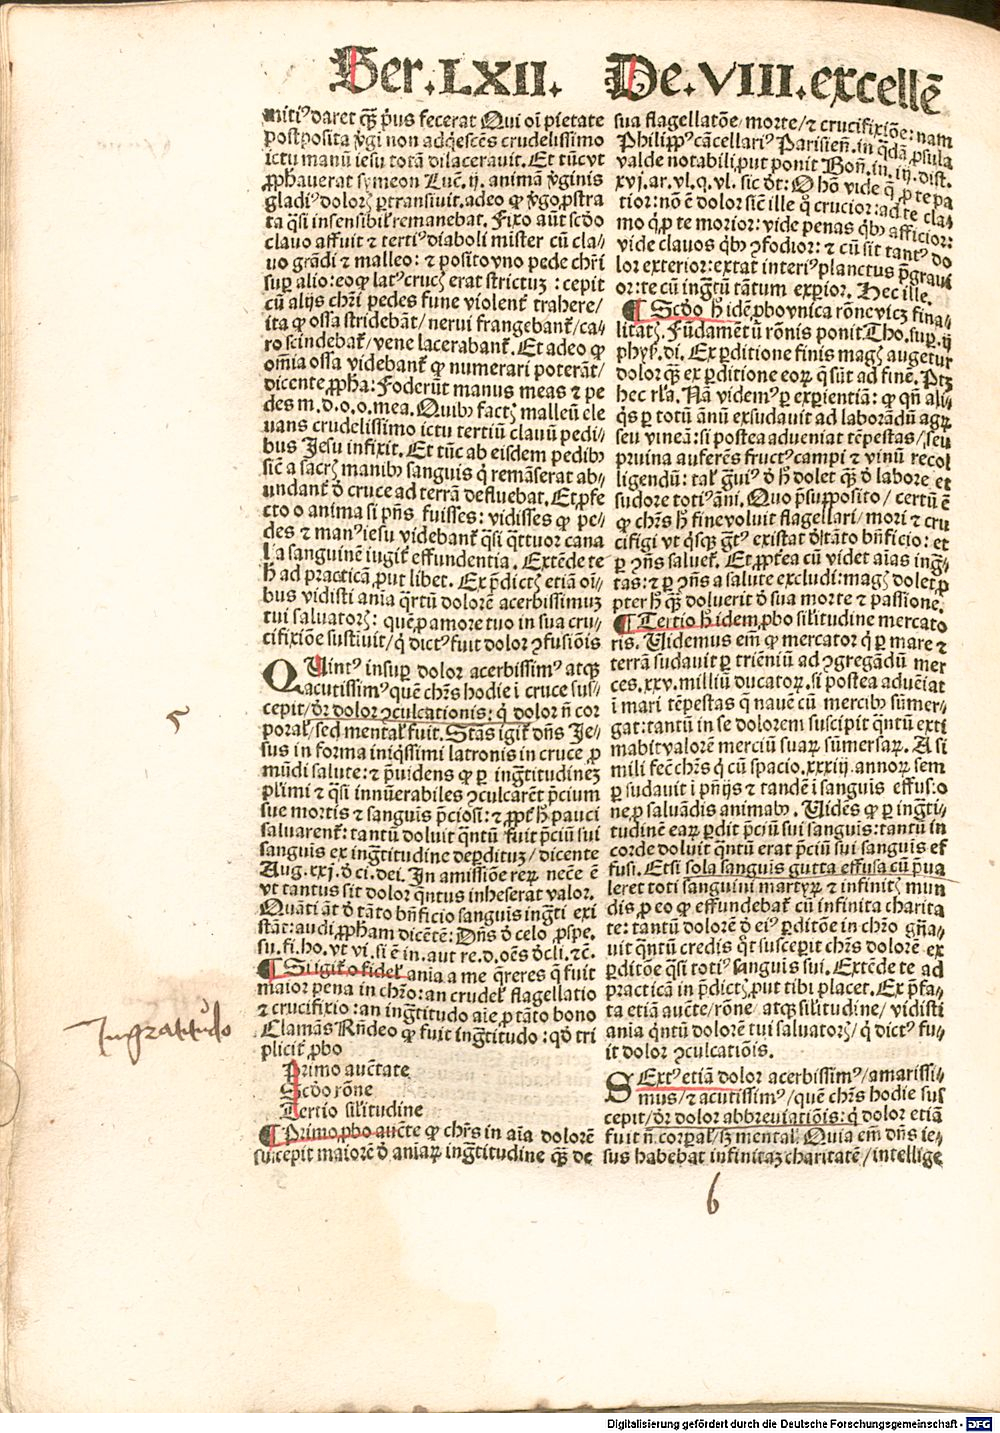 Ser. LXII. De. VIII. excellē
miti⁹ daret qȝ̄ pⁱus fecerat Qui oī pietate
postposita v̄gi non adqⁱescēs crudelissimo
ictu manū iesu totā dilaceravit. Et tūc vt
ꝓph̄auerat symeon Luc̄. ij. animā v̄ginis
gladi⁹ dolorꝭ ꝑtransiuit. adeo ꝙ v̄go ꝓstra
ta qͣsi insensibilꝭ remanebat. Fixo aūt scdo
clauo affuit ⁊ terti⁹ diaboli mister cū cla⸗
uo grādi ⁊ malleo: ⁊ posito vno pede chr̄i
suꝑ alio: eo ꝙ lat⁹ crucꝭ erat strictus: cepit
cū alijs chr̄i pedes fune violent̄ trahere/
ita ꝙ ossa stridebāt/nerui frangebant̄/ca⸗
ro scindebat̄/vene lacerabant̄. Et adeo ꝙ
om̄ia ossa videbant̄ ꝙ numerari poterāt/
dicente ꝓph̄a: Foderūt manus meas ⁊ pe
des m. d. o. o. mea. Quibꝰ factꝭ malleū ele
uans crudelissimo ictu tertiū clauū pedi⸗
bus Jesu infixit. Et tūc ab eisdem pedibꝰ
sic̄ a sacrꝭ manibꝰ sanguis q̄ remāserat ab⸗
undant̄ d̄ cruce ad terrā defluebat. Et ꝓfe
cto o anima si pn̄s fuisses: vidisses ꝙ pe⸗
des ⁊ man⁹ iesu videbant̄ qͣsi qͣttuor cana
lia sanguinē iugit̄ effundentia. Extēde te
h̄ ad practicā ꝓut libet. Ex p̄dictꝭ etiā oī⸗
bus vidisti aīa qͣrtū dolorē acerbissimuȝ
tui saluatorꝭ: quē ꝓ amore tuo in sua cru⸗
cifixiōe sustinuit/q̄ dict⁹ fuit dolor ꝯfusiōis
QUint⁹ insuꝑ dolor acerbissim⁹ atqȝ
acutissim⁹ quē chr̄s hodie i cruce sus⸗
cepit/dr̄ dolor ꝯculcationis: q̄ dolor n̄ cor
poral̄/sed mental̄ fuit. Stās igit̄ dn̄s Je⸗
sus in forma iniqͥssimi latronis in cruce ꝓ
mūdi salute: ⁊ p̄uidens ꝙ ꝑ ingͣtitudineȝ
pl̄imi ⁊ qͣsi innūerabiles ꝯculcarēt p̄cium
sue mortis ⁊ sanguīs p̄ciosi: ⁊ ꝓpt̄ h̄ pauci
saluarent̄: tantū doluit qͣntū fuit p̄ciū sui
sanguīs ex ingͣtitudine deꝑdituȝ/dicente
Aug. xxj. d̄ ci. dei. In amissiōe reꝝ nec̄e ē
vt tantus sit dolor qͣntus inheserat valor.
Quāti āt d̄ tāto bn̄ficio sanguīs ingͣti exi
stāt: audi ꝓph̄am dicētē: Dn̄s d̄ celo ꝓspe.
su. fi. ho. vt vi. si ē in. aut re. d. oēs d̄cli. ⁊c̄.
¶ Si igit̄ o fidel̄ aīa a me qͣreres q̄ fuit
maior pena in chr̄o: an crudel̄ flagellatio
⁊ crucifixio: an ingͣtitudo aīe ꝓ tāto bono
Clamās Rn̄deo ꝙ fuit ingͣtitudo: qd̄ tri
plicit̄ ꝓbo
Primo auc̄tate
Scd̄o rōne
Tertio sil̄itudine
¶ Primo ꝓbo auc̄te ꝙ chr̄s in aīa dolorē
suscepit maiorē d̄ aīaꝝ ingͣtitudine qȝ̄ de
sua flagellatōe/morte/⁊ crucifixiōe: nam
Philipp⁹ cācellari⁹ Parisieñ. in qͣdā ꝓsula
valde notabili ꝓut ponit Boñ. in. iij. dist.
xvj. ar. vl. q. vl. sic dt̄: O hō vide q̄ ꝓ te pa
tior: nō ē dolor sic̄ ille q̄ crucior: ad te cla⸗
mo qͥ ꝓ te morior: vide penas qͥbꝰ afficior:
vide clauos qͥbꝰ ꝯfodior: ⁊ cū sit tant⁹ do
lor exterior: extat interi⁹ planctus gͣaui
or: te cū ingͣtū tātum exꝑior. Hec ille.
¶ Scd̄o h̄ idē ꝓbo vnica rōne vicȝ fina⸗
litatꝭ. Fūdamētū rōnis ponit Tho. suꝑ. ij
phyⱻ. di. Ex ꝑditione finis magꝭ augetur
dolor qȝ̄ ex ꝑditione eoꝝ q̄ sūt ad finē. Ptȝ
hec rl̄a. Nā videm⁹ ꝑ exꝑientiā: ꝙ qn̄ ali⸗
qͥs ꝑ totū annū exsudauit ad laborādū agꝝ
seu vineā: si postea adueniat tēpestas/seu
pruina auferēs fruct⁹ campi ⁊ vinū recol
ligendū: tal̄ gͣui⁹ d̄ h̄ dolet qȝ̄ d̄ labore et
sudore toti⁹ āni. Quo p̄supposito/certū ē
ꝙ chr̄s h̄ fine voluit flagellari/mori ⁊ cru
cifigi vt qͥsqȝ gͣt⁹ existat d̄ tāto bn̄ficio: et
ꝑ ꝯn̄s saluet̄. Et ꝓpt̄ea cū videt aīas ingͣ⸗
tas: ⁊ ꝑ ꝯn̄s a salute excludi: magꝭ dolet ꝓ
pter h̄ qȝ̄ doluerit d̄ sua morte ⁊ passione.
¶ Tertio h̄ idem ꝓbo sil̄itudine mercato
ris. Videmus em̄ ꝙ mercator qͥ ꝑ mare ⁊
terrā sudauit ꝑ triēniū ad ꝯgregādū mer
ces. xxv. milliū ducatoꝝ. si postea adueīat
i mari tēpestas q̄ nauē cū mercibꝰ sūmer⸗
gat: tantū in se dolorem suscipit qͣntū exti
mabit valorē merciū suaꝝ sūmersaꝝ. A si
mili fec̄ chr̄s qͥ cū spacio. xxxiij. annoꝝ sem
ꝑ sudauit i pn̄ijs ⁊ tandē i sanguīs effusi⸗o
ne ꝓ saluādis animabꝰ. Vidēs ꝙ ꝑ ingͣti⸗
tudinē eaꝝ ꝑdit p̄ciū sui sanguīs: tantū in
corde doluit qͣntū erat p̄ciū sui sanguīs ef
fusi. Etsi sola sanguīs gutta effusa cū p̄ua
leret toti sanguini martyꝝ ⁊ infinitꝭ mun
dis ꝓ eo ꝙ effundebat̄ cū infinita charita
te: tantū dolorē d̄ ei⁹ ꝑditōe in chr̄o gn̄a⸗
uit qͣntū credis qt̄ suscepit chr̄s dolorē ex
ꝑditōe qͣsi toti⁹ sanguīs sui. Extēde te ad
practicā in p̄dictꝭ ꝓut tibi placet. Ex p̄fa⸗
ta etiā auc̄te/rōne/atqȝ sil̄itudine/vidisti
aīa qͥntū dolorē tui saluatorꝭ/q̄ dict⁹ fu⸗
it dolor ꝯculcatiōis.
SExt⁹ etiā dolor acerbissim⁹/amarissi⸗
mus/⁊ acutissim⁹/quē chr̄s hodie sus
cepit/dr̄ dolor abbreuiatiōis: q̄ dolor etiā
fuit n̄ corꝑal̄/sȝ mental̄. Quia em̄ dn̄s ie⸗
sus habebat infinitaȝ charitatē/intellige
5
Ingratitudo
6
Digitalisierung gefördert durch die Deutsche Forschungsgemeinschaft - DFG